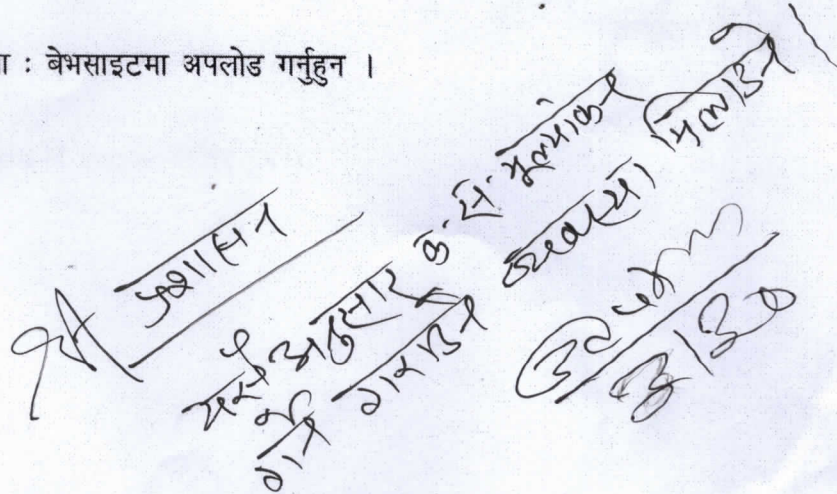 ा : बेभसाइटमा अपलोड गर्नुहुन ।
श्री प्रशासन
यसै अनुसार का. स. मूल्यांकन
गर्ने गराउने व्यवस्था मिलाउने
३/३०